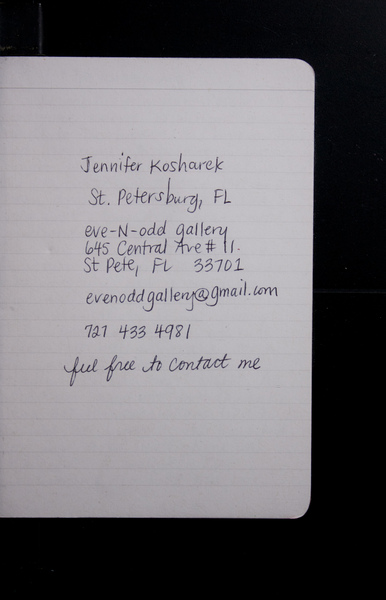 Jennifer Kosharek
St. Petersburg, FL
eve-N-odd gallery
645 Central Ave # 11.
St Pete, FL 33701
evenoddgallery@gmail.com
727 433 4981
feel free to contact me